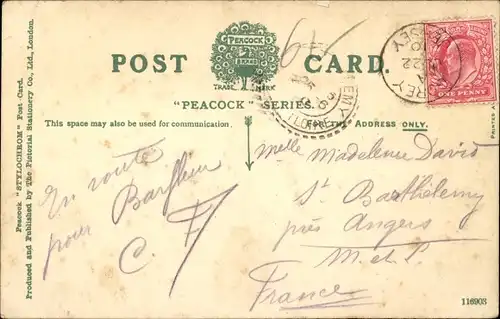 POST CARD.
PEACOCK
BRAND
TRADE MARK
"PEACOCK" SERIES.
This space may also be used for communication.
FOR THE ADDRESS ONLY.
ONE PENNY
JERSEY
22
Peacock "STYLOCHROM" Post Card.
Produced and Published by The Pictorial Stationery Co., Ltd., London.
En route
pour Barfleur
C. F
Melle Madeleine David
St Barthélemy
près Angers
M. et L.
France
116903